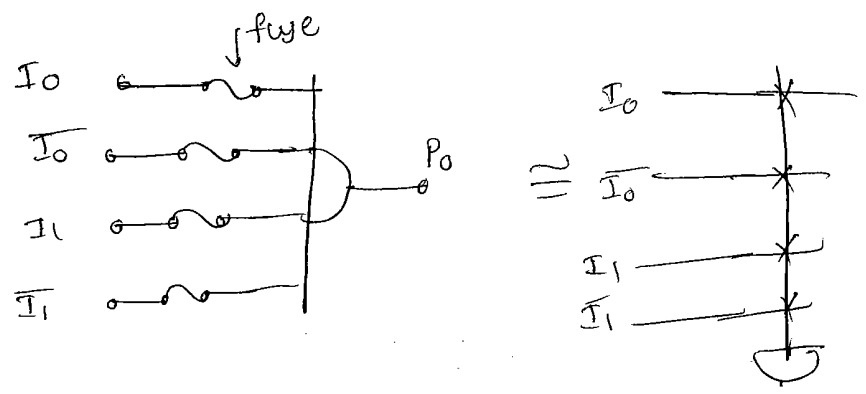 fuse
I0
I̅0̅
I1
I̅1̅
P0
≅
I0
I̅0̅
I1
I̅1̅